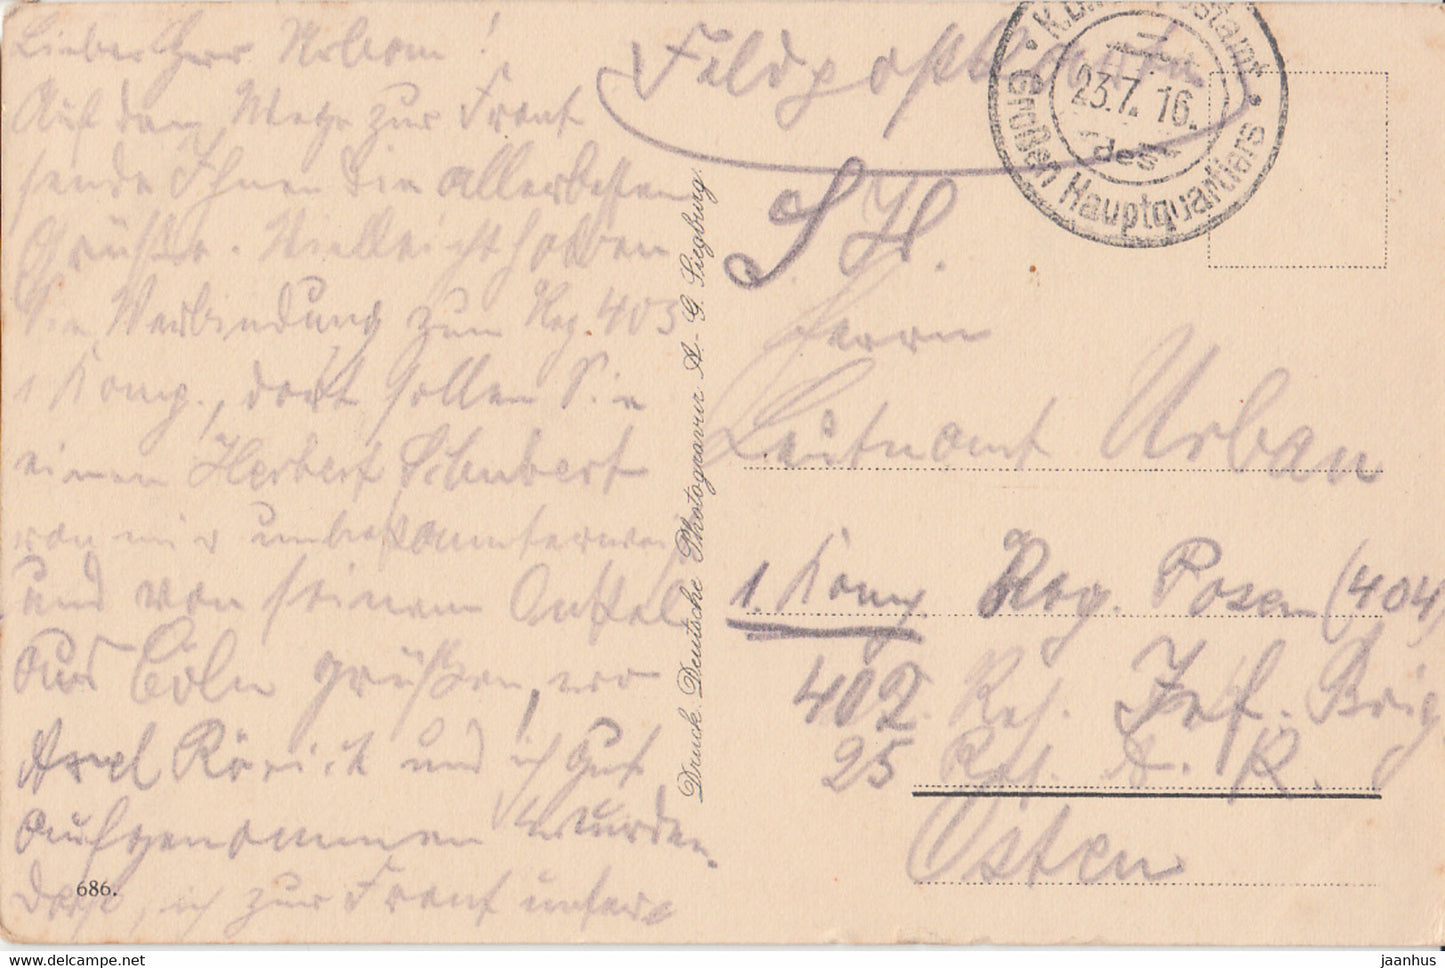 Lieber Herr Urban!
Auf dem Wege zur Front
sende Ihnen die allerbesten
Grüße. Vielleicht haben
Sie Verbindung zum Reg. 403
1 Komp., dort sollen Sie
einen Herbert Schubert
von mir unbekannterweise
und von seinem Onkel
aus Cöln grüßen, wo
Axel und ich gut
aufgenommen wurden.
ich zur Front
686.
Druck. Deutsche Photogravur A.-G. Siegburg.
Feldpostkarte
K.D. Postamt
23.7.16.
des
Großen Hauptquartiers
S H.
Herrn
Leutnant Urban
1. Komp. Reg. Posen (404)
402. Res. Inf. Brig
25 Res. D. R.
Osten
jaanhus